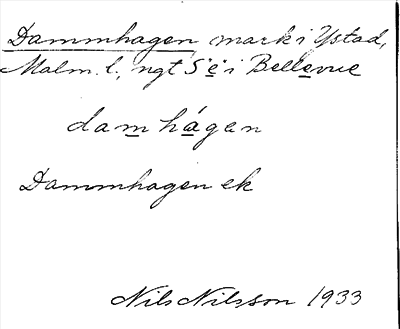 Dammhagen mark i Ystad,
Malm. l., ngt S e i Bellevue
dam hágen
Dammhagen ek
Nils Nilsson 1933